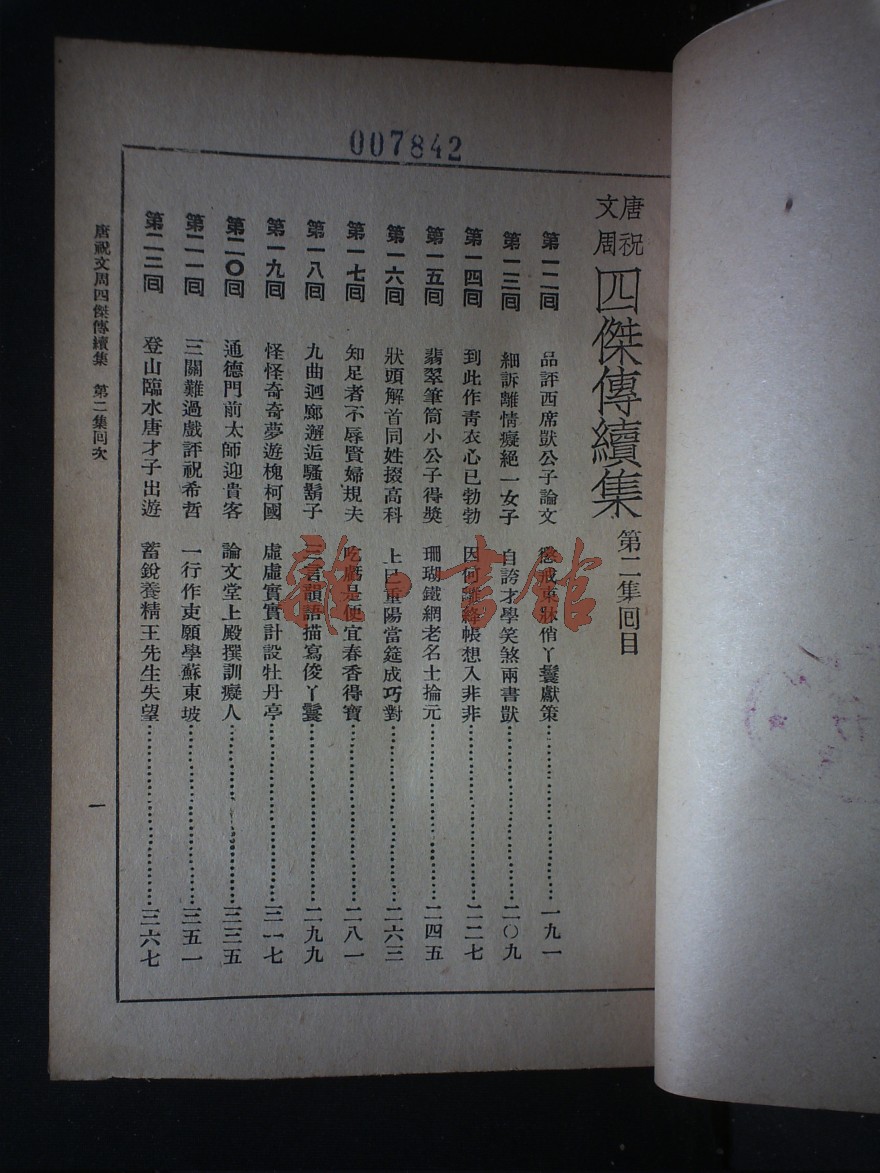 007842
唐祝文周四傑傳續集 第二集回目
第一二回 品評西席獃公子論文 懲戒東牀俏丫鬟獻策 一九一
第一三回 細訴離情癡絕一女子 自誇才學笑煞兩書獃 二〇九
第一四回 到此作靑衣心已勃勃 因何離絳帳想入非非 二二七
第一五回 翡翠筆筒小公子得獎 珊瑚鐵網老名士掄元 二四五
第一六回 狀頭解首同姓掇高科 上巳重陽當筵成巧對 二六三
第一七回 知足者不辱賢婦規夫 吃虧是便宜春香得寶 二八一
第一八回 九曲迴廊邂逅騷鬍子 三言韻語描寫俊丫鬟 二九九
第一九回 怪怪奇奇夢遊槐柯國 虛虛實實計設牡丹亭 三一七
第二〇回 通德門前太師迎貴客 論文堂上殿撰訓癡人 三三五
第二一回 三關難過戲評祝希哲 一行作吏願學蘇東坡 三五一
第二二回 登山臨水唐才子出遊 蓄銳養精王先生失望 三六七
唐祝文周四傑傳續集 第二集回次 一
雜·書館